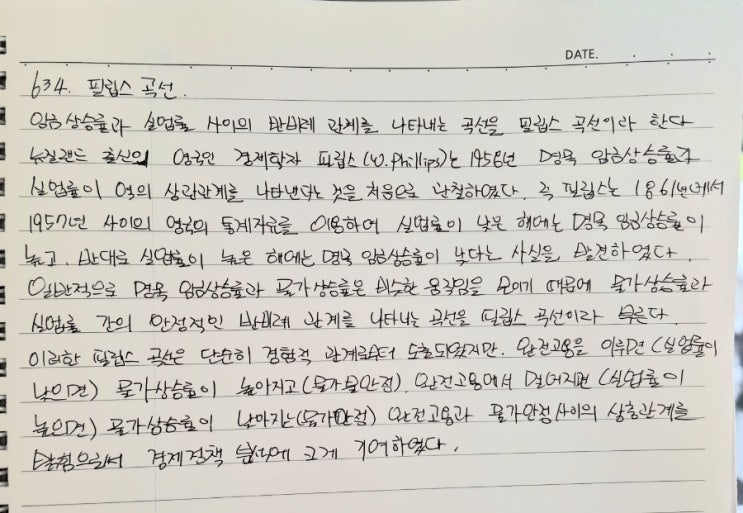 DATE.
634. 필립스 곡선.
임금상승률과 실업률 사이의 반비례 관계를 나타내는 곡선을 필립스 곡선이라 한다
뉴질랜드 출신의 영국인 경제학자 필립스(W. Phillips)는 1958년 명목 임금상승률과
실업률이 역의 상관관계를 나타낸다는 것을 처음으로 관찰하였다. 즉 필립스는 1861년에서
1957년 사이의 영국의 통계자료를 이용하여 실업률이 낮은 해에는 명목 임금상승률이
높고. 반대로 실업률이 높은 해에는 명목 임금상승률이 낮다는 사실을 발견하였다.
일반적으로 명목 임금상승률과 물가상승률은 비슷한 움직임을 보이기 때문에 물가상승률과
실업률 간의 안정적인 반비례 관계를 나타내는 곡선을 필립스 곡선이라 부른다.
이러한 필립스 곡선은 단순히 경험적 관계로부터 도출되었지만. 완전고용을 이루면 (실업률이
낮으면) 물가상승률이 높아지고 (물가불안정). 완전고용에서 멀어지면 (실업률이
높으면) 물가상승률이 낮아지는 (물가안정) 완전고용과 물가안정사이의 상충관계를
경제정책 분야에 크게 기여하였다.